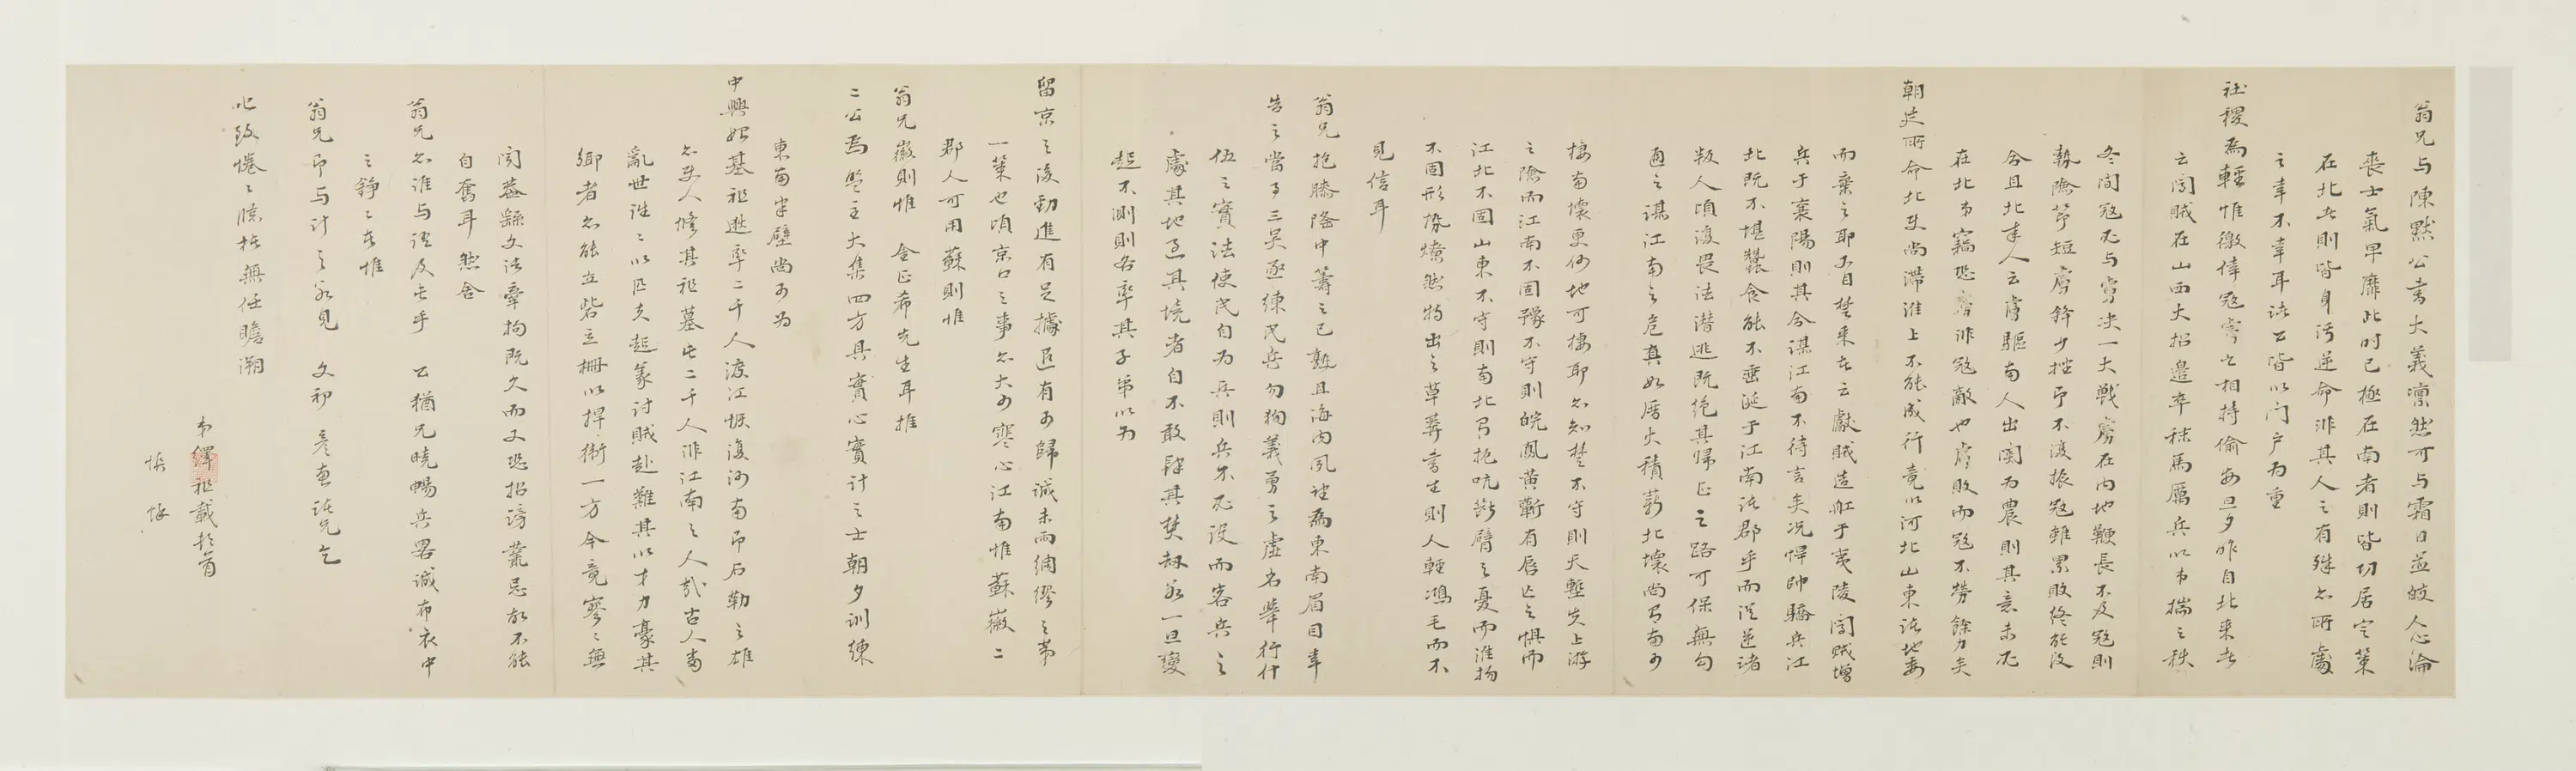 翁兄与陳黙公書大義凛然可与霜日並皎人心淪
喪士氣早靡此時已極在南者則皆功居定策
在北者則皆身污逆命非其人之有殊亦所處
之幸不幸耳諸公皆以门户为重
社稷为輕惟徼倖冦虜之相持偷安旦夕昨自北来者
云闯賊在山西大招邉卒秣馬厲兵以弟揣之秋
冬间冦必与虜决一大戦虜在内地鞭長不及冦則
執隂節短虜鋒少挫即不復振冦雖累敗终能没
今且北来人云虜驅南人出関为農則其意未必
在北弟竊恐虜非冦敵也虜敗而冦不勞餘力矣
朝廷所命北使尚滞淮上不能成行竟以河北山東诸地委
而棄之耶又自楚来者云獻賊造舡于夷陵闯賊增
兵于襄陽則其合谋江南不待言矣况悍帥驕兵江
北既不堪蠶食能不垂涎于江南诸郡乎而从逆诸
叛人頃復畏法潜逃既绝其帰正之路可保無勾
通之谋江南之危真如厝火積薪北壤尚有南可
棲南壤更何地可棲耶亦知楚不守則天塹失上游
之險而江南不固豫不守則皖鳳黄蘄有唇亡之惧而
江北不固山東不守則南北有扼吭断臂之憂而淮揚
不固形勢燎然特出之草莽書生則人輕鴻毛而不
見信耳
翁兄抱膝隆中籌之已熟且海内風望为東南眉目幸
告之當事三吴亟練民兵勿狥義勇之虚名舉行什
伍之實法使民自为兵則兵不必設而客兵之
處其地過其境者自不敢肆其焚刧万一旦變
起不測則各率其子弟以为
留京之後勁進有足據退有可歸诚未雨绸缪之第
一策也頃京口之事亦大可寒心江南惟蘇徽二
郡人可用蘇則惟
翁兄徽則惟 金正希先生耳推
二公为盟主大集四方具實心實計之士朝夕训練
東南半壁尚可为
中興始基祖逖率二千人渡江恢復河南即石勒之雄
亦使人修其祖墓步二千人非江南之人哉古人当
亂世往々以匹夫起義讨賊赴難其以才力豪其
鄉者亦能立砦立柵以捍衛一方今竟寥々無
闻蓋繇文法牽拘既久而又恐招谤叢忌故不能
自奮耳 然舍
翁兄亦谁与语及此乎 公猶兄曉暢兵畧诚布衣中
之錚々者惟
翁兄即与计之万見 文初 彦兼诸兄乞
叱致惓々臨楮無任瞻溯
弟繹祖載頓首